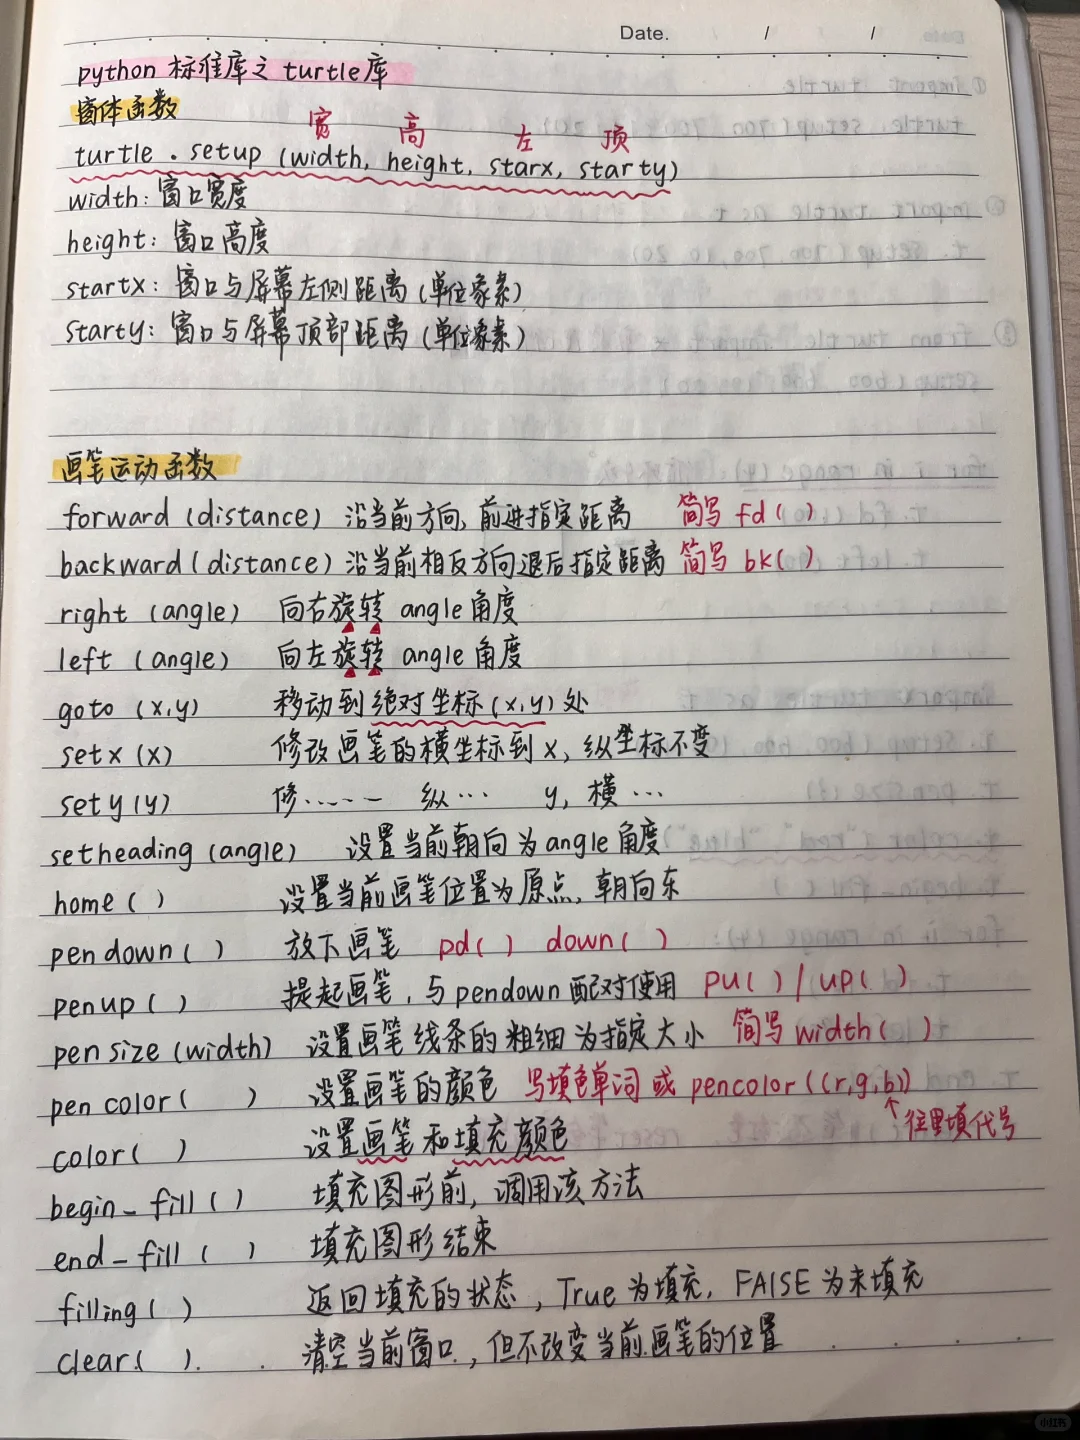 Date. / /
python 标准库之 turtle库
窗体函数
宽 高 左 顶
turtle . setup (width, height, starx, starty)
width: 窗口宽度
height: 窗口高度
startx: 窗口与屏幕左侧距离 (单位象素)
starty: 窗口与屏幕顶部距离 (单位象素)
画笔运动函数
forward (distance) 沿当前方向, 前进指定距离 简写 fd( )
backward (distance) 沿当前相反方向退后指定距离 简写 bk( )
right (angle) 向右旋转 angle 角度
left (angle) 向左旋转 angle 角度
goto (x,y) 移动到绝对坐标 (x,y) 处
setx (x) 修改画笔的横坐标到 x, 纵坐标不变
sety (y) 修…… 纵… y, 横…
setheading (angle) 设置当前朝向为 angle 角度
home ( ) 设置当前画笔位置为原点, 朝向东
pendown ( ) 放下画笔 pd( ) down( )
penup ( ) 提起画笔, 与 pendown 配对使用 pu( ) / up( )
pensize (width) 设置画笔线条的粗细为指定大小 简写 width ( )
pencolor ( ) 设置画笔的颜色 写填色单词 或 pencolor((r,g,b))
往里填代号
color ( ) 设置画笔和填充颜色
begin_fill ( ) 填充图形前, 调用该方法
end_fill ( ) 填充图形结束
filling ( ) 返回填充的状态, True 为填充, FAlSE 为未填充
clear ( ) 清空当前窗口, 但不改变当前画笔的位置
小红书